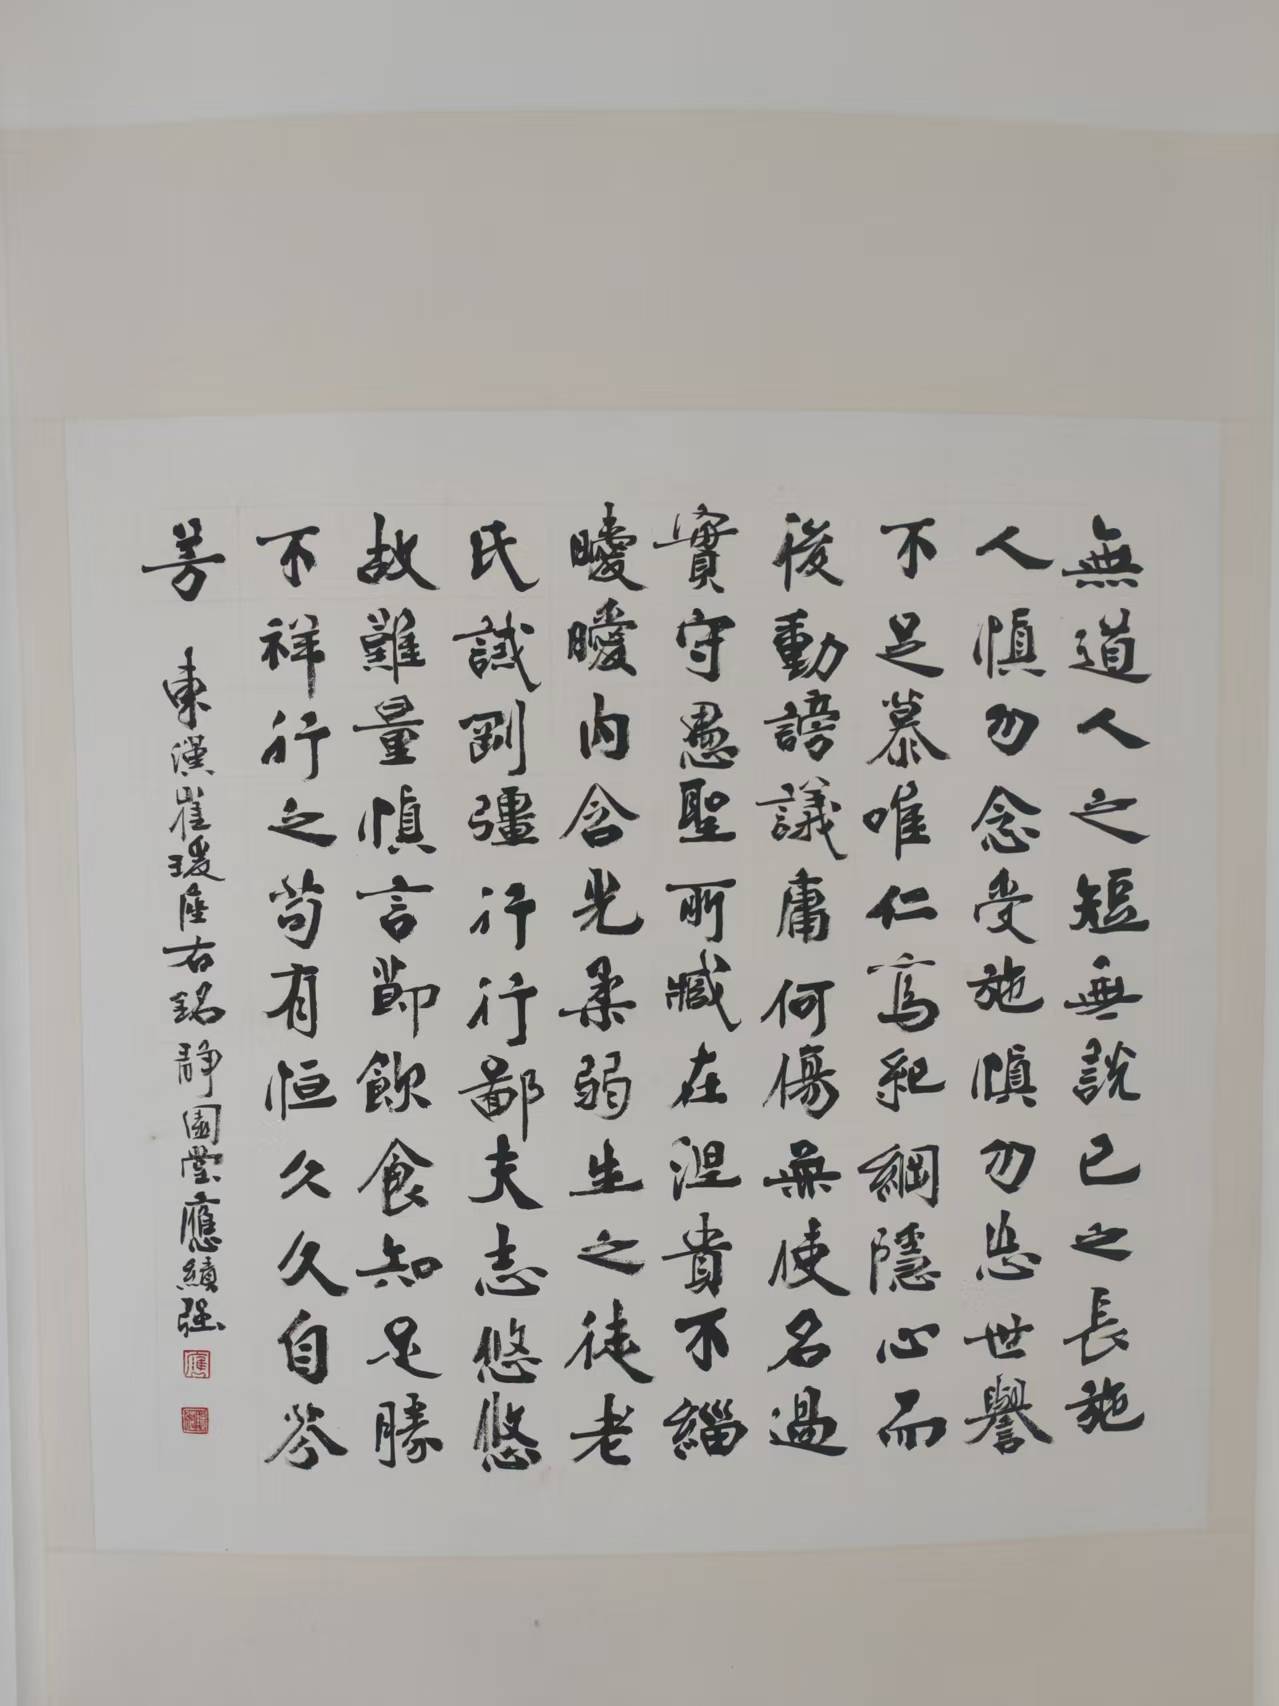 無道人之短無說己之長施
人慎勿念受施慎勿忘世譽
不足慕唯仁為紀綱隱心而
後動謗議庸何傷無使名過
實守愚聖所臧在涅貴不緇
曖曖內含光柔弱生之徒老
氏誡剛彊行行鄙夫志悠悠
故難量慎言節飲食知足勝
不祥行之苟有恒久久自芬
芳
東漢崔瑗座右銘靜園堂應績强